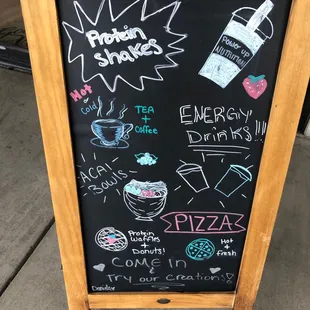 Protein
shakes
Power up
Nutrition
Hot
Cold
TEA
+
Coffee
ENERGY
Drinks!!!
ACAI
BOWLS
PIZZA
Protein
Waffles
+
Donuts!
Hot
+
fresh
COME IN
&
Try our creations!